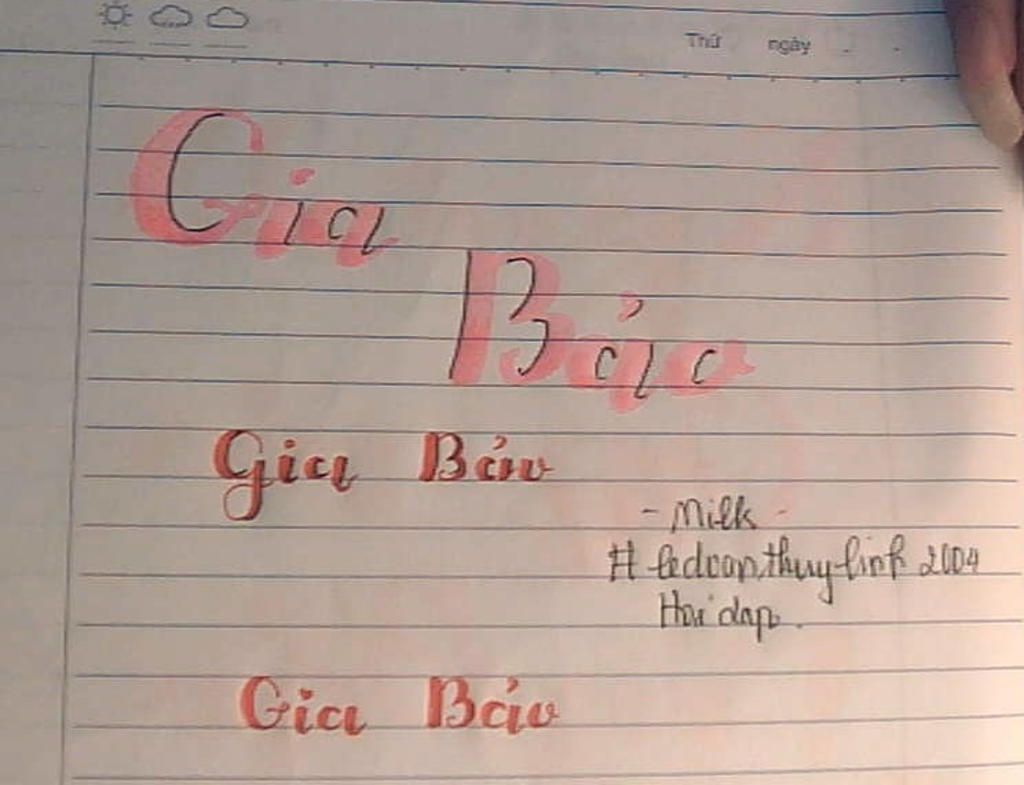 Thứ ngày . .
Gia
Bảo
Gia Bảo
- Milk -
# ledoanthuylinh 2004
Hoidap.
Gia Bảo